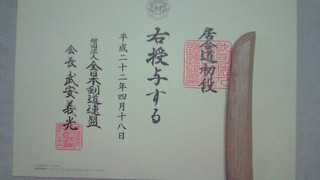 居合道初段
右授与する
平成二十二年四月十八日
財団法人全日本剣道連盟
会長武安義光